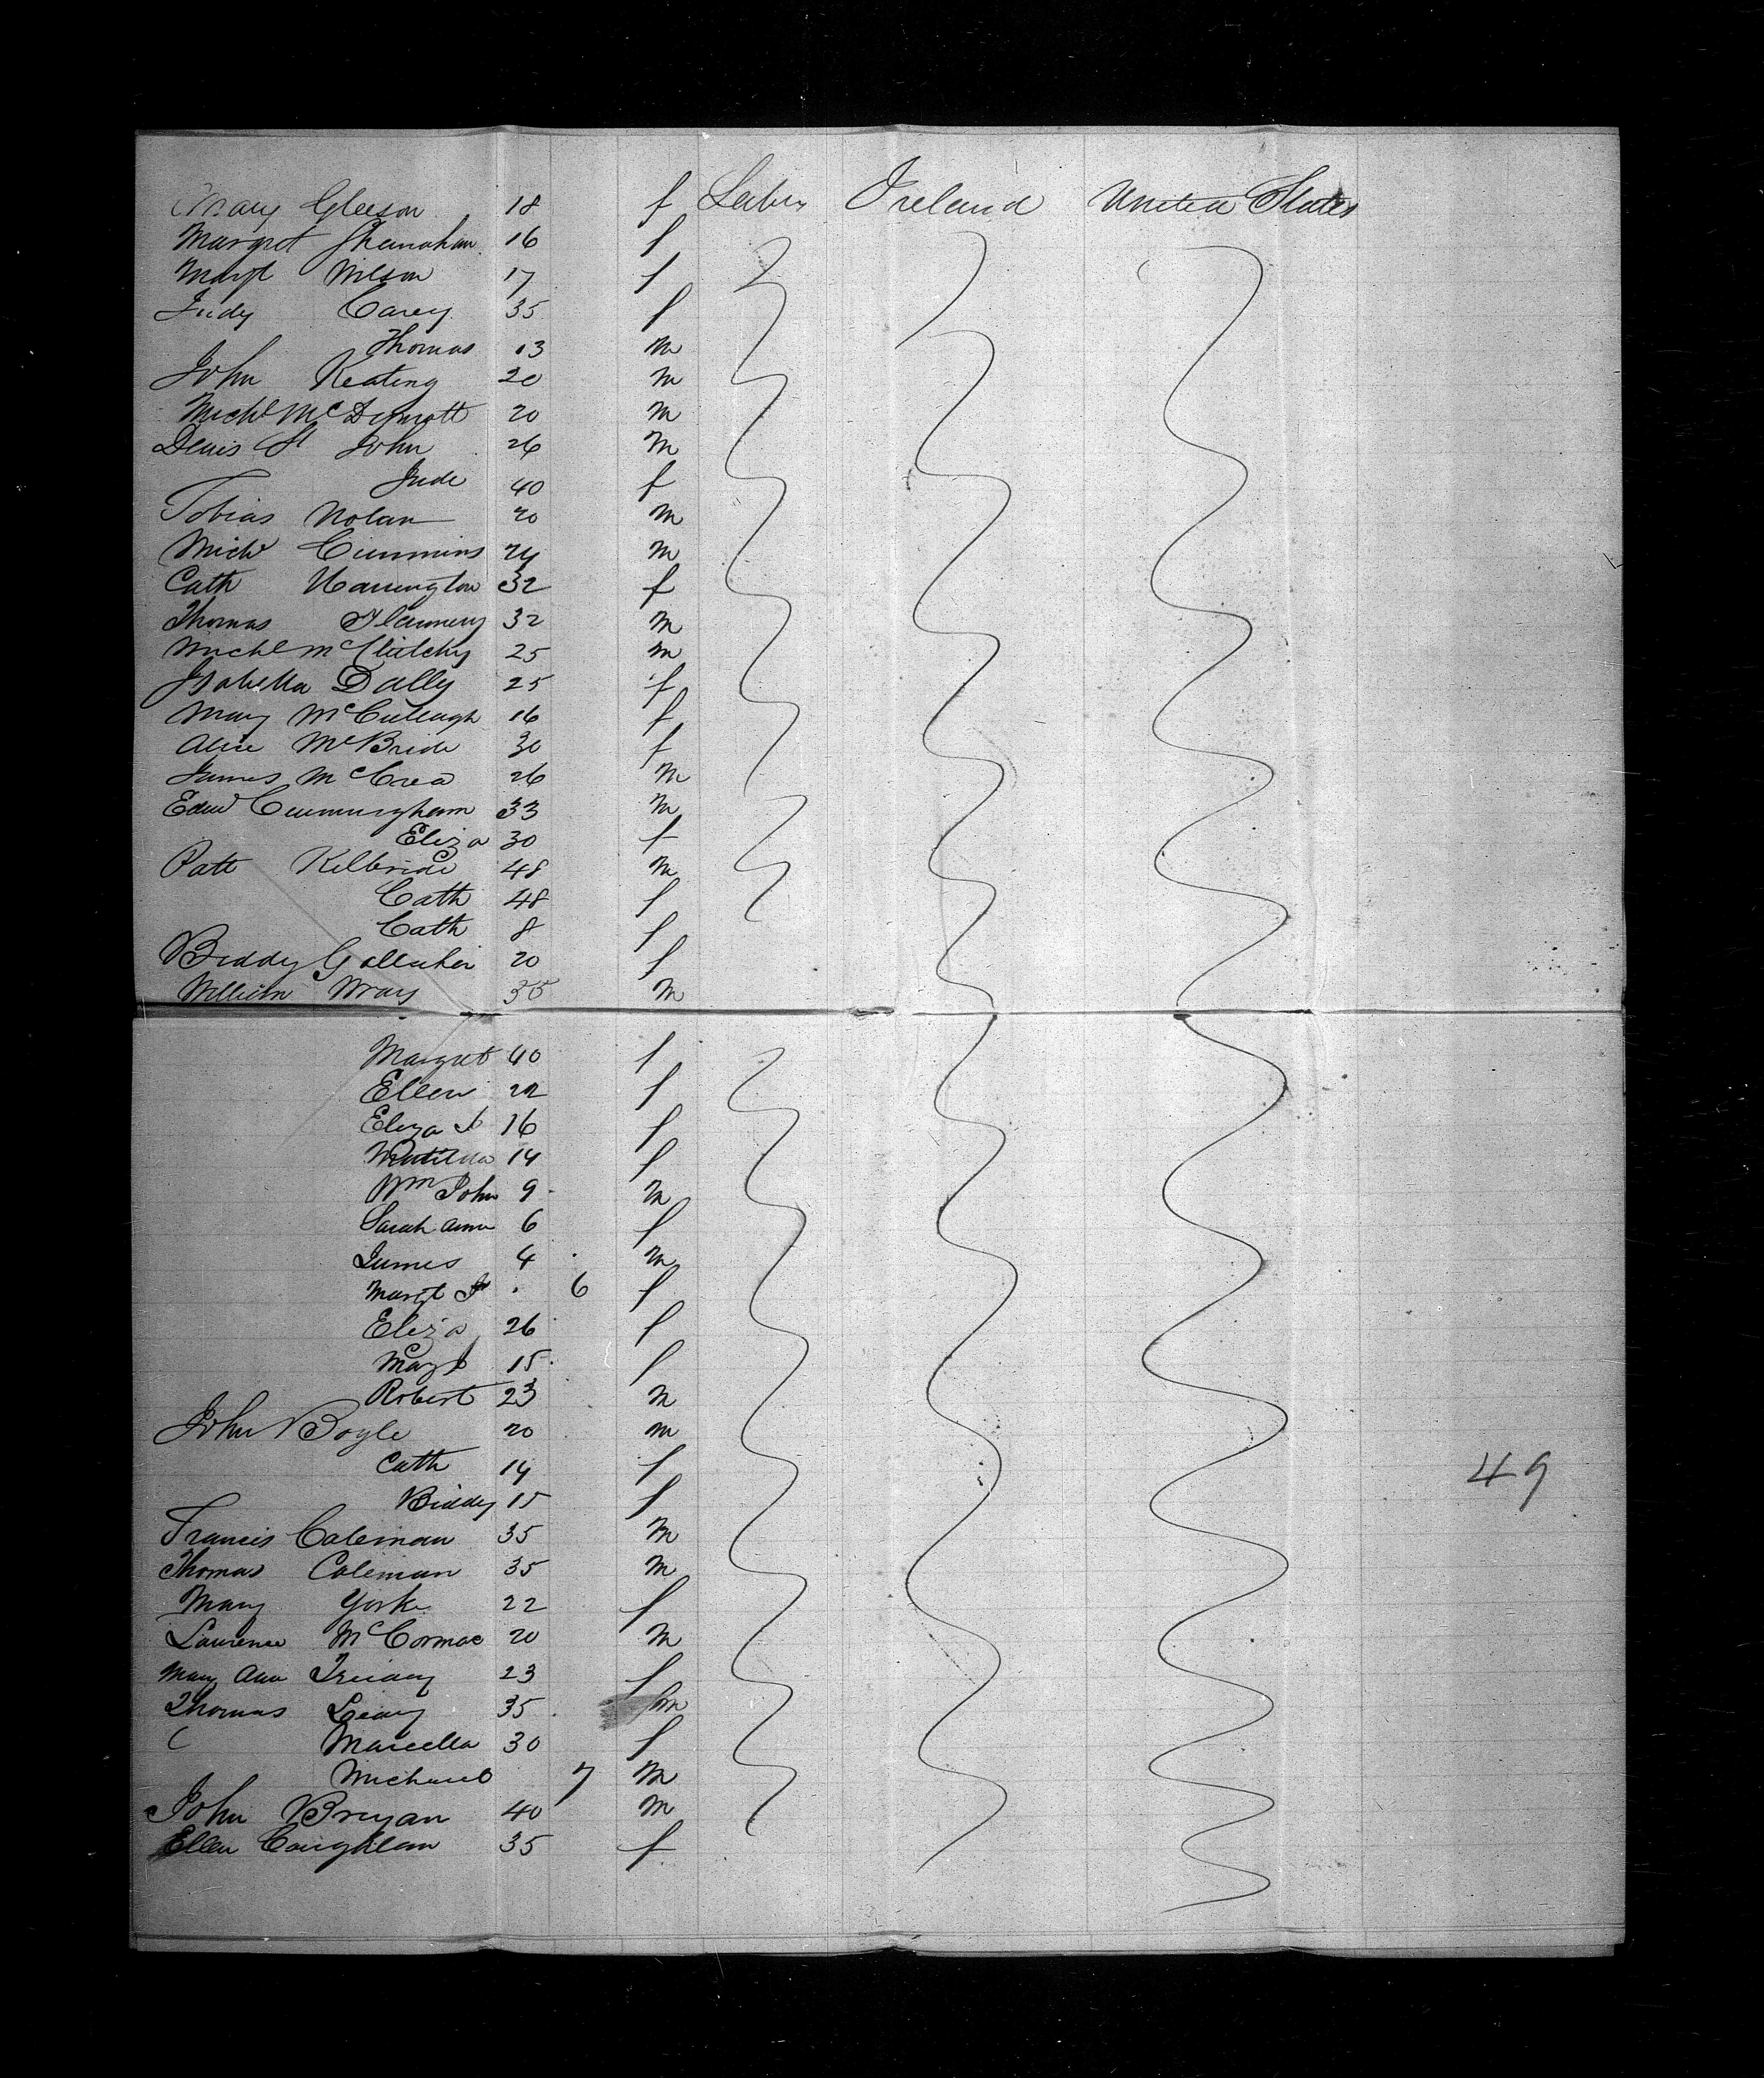 Mary Gleeson 18 f Labr Ireland United States
Margret Shanahan 16 f
Margt Wilson 17 f
Judy Carey 35 f
Thomas 13 m
John Keating 20 m
Michl McDermott 20 m
Denis St John 26 m
Jude 40 f
Tobias Nolan 20 m
Michl Cummins 24 m
Cath Harrington 32 f
Thomas Flannery 32 m
Michl McClutchy 25 m
Isabella Dally 25 f
Mary McCullagh 16 f
Alice McBride 30 f
James McCrea 26 m
Edwd Cunningham 33 m
Eliza 30 f
Patt Kilbride 48 m
Cath 48 f
Cath 8 f
Biddy Gallaher 20 f
William Wray 35 m
Margret 40 f
Ellen 22 f
Eliza J 16 f
Matilda 14 f
Wm John 9 m
Sarah Ann 6 f
James 4 m
Margt J 6 f
Eliza 26 f
Mary J 15 f
Robert 23 m
John Boyle 20 m
Cath 14 f
Biddy 15 f
49
Francis Coleman 35 m
Thomas Coleman 35 m
Mary York 22 f
Laurence McCormac 20 m
Mary Ann 23 f
Thomas Leary 35 m
Marcella 30 f
Michael 7 m
John Bryan 40 m
Ellen Coughlan 35 f